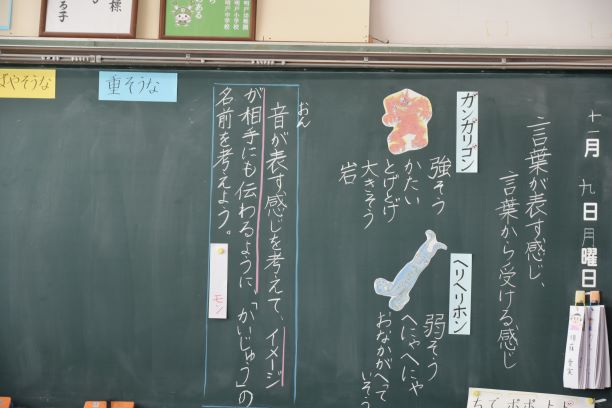 十一月九日月曜日
言葉が表す感じ、
言葉から受ける感じ
ガンガリゴン
強そう
かたい
とげとげ
大きそう
岩
ヘリヘリホン
弱そう
へにゃへにゃ
おなかがへって
いそう
おん
音が表す感じを考えて、イメージ
が相手にも伝わるように、「かいじゅう」の
名前を考えよう。
モン
重そうな
ばやそうな
様
る子